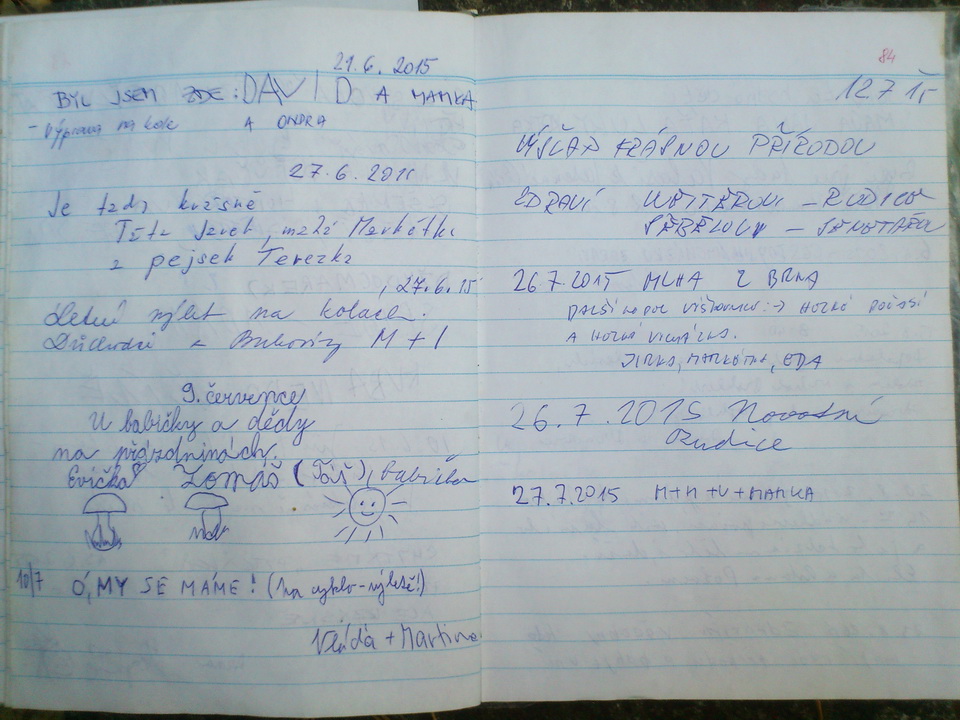 21.6. 2015
BYL JSEM ZDE : DAVID A MAMKA
- Výprava na kole A ONDRA
27.6. 201
Je tady krásně
Teta , malá Markétka
a pejsek Terezka
, 27.6.15
Letní výlet na kolách.
Důchodci z Bukoviny M + I
9. července
U babičky a dědy
na prázdninách.
Evička Tomáš ( ), babička
10/7 Ó, MY SE MÁME! (na cyklo-výletě!)
Vláďa + Martina
84
12 7 15
VÝŠLAP KRÁSNOU PŘÍRODOU
ZDRAVÍ - RUDICE
- SENETÁŘOV
26.7.2015 MLHA Z BRNA
DALŠÍ :-> HORKÉ POČASÍ
A
JIRKA, MARKÉTKA, EDA
26.7.2015 Novotní
Rudice
27.7.2015 M+M+V+MAMKA